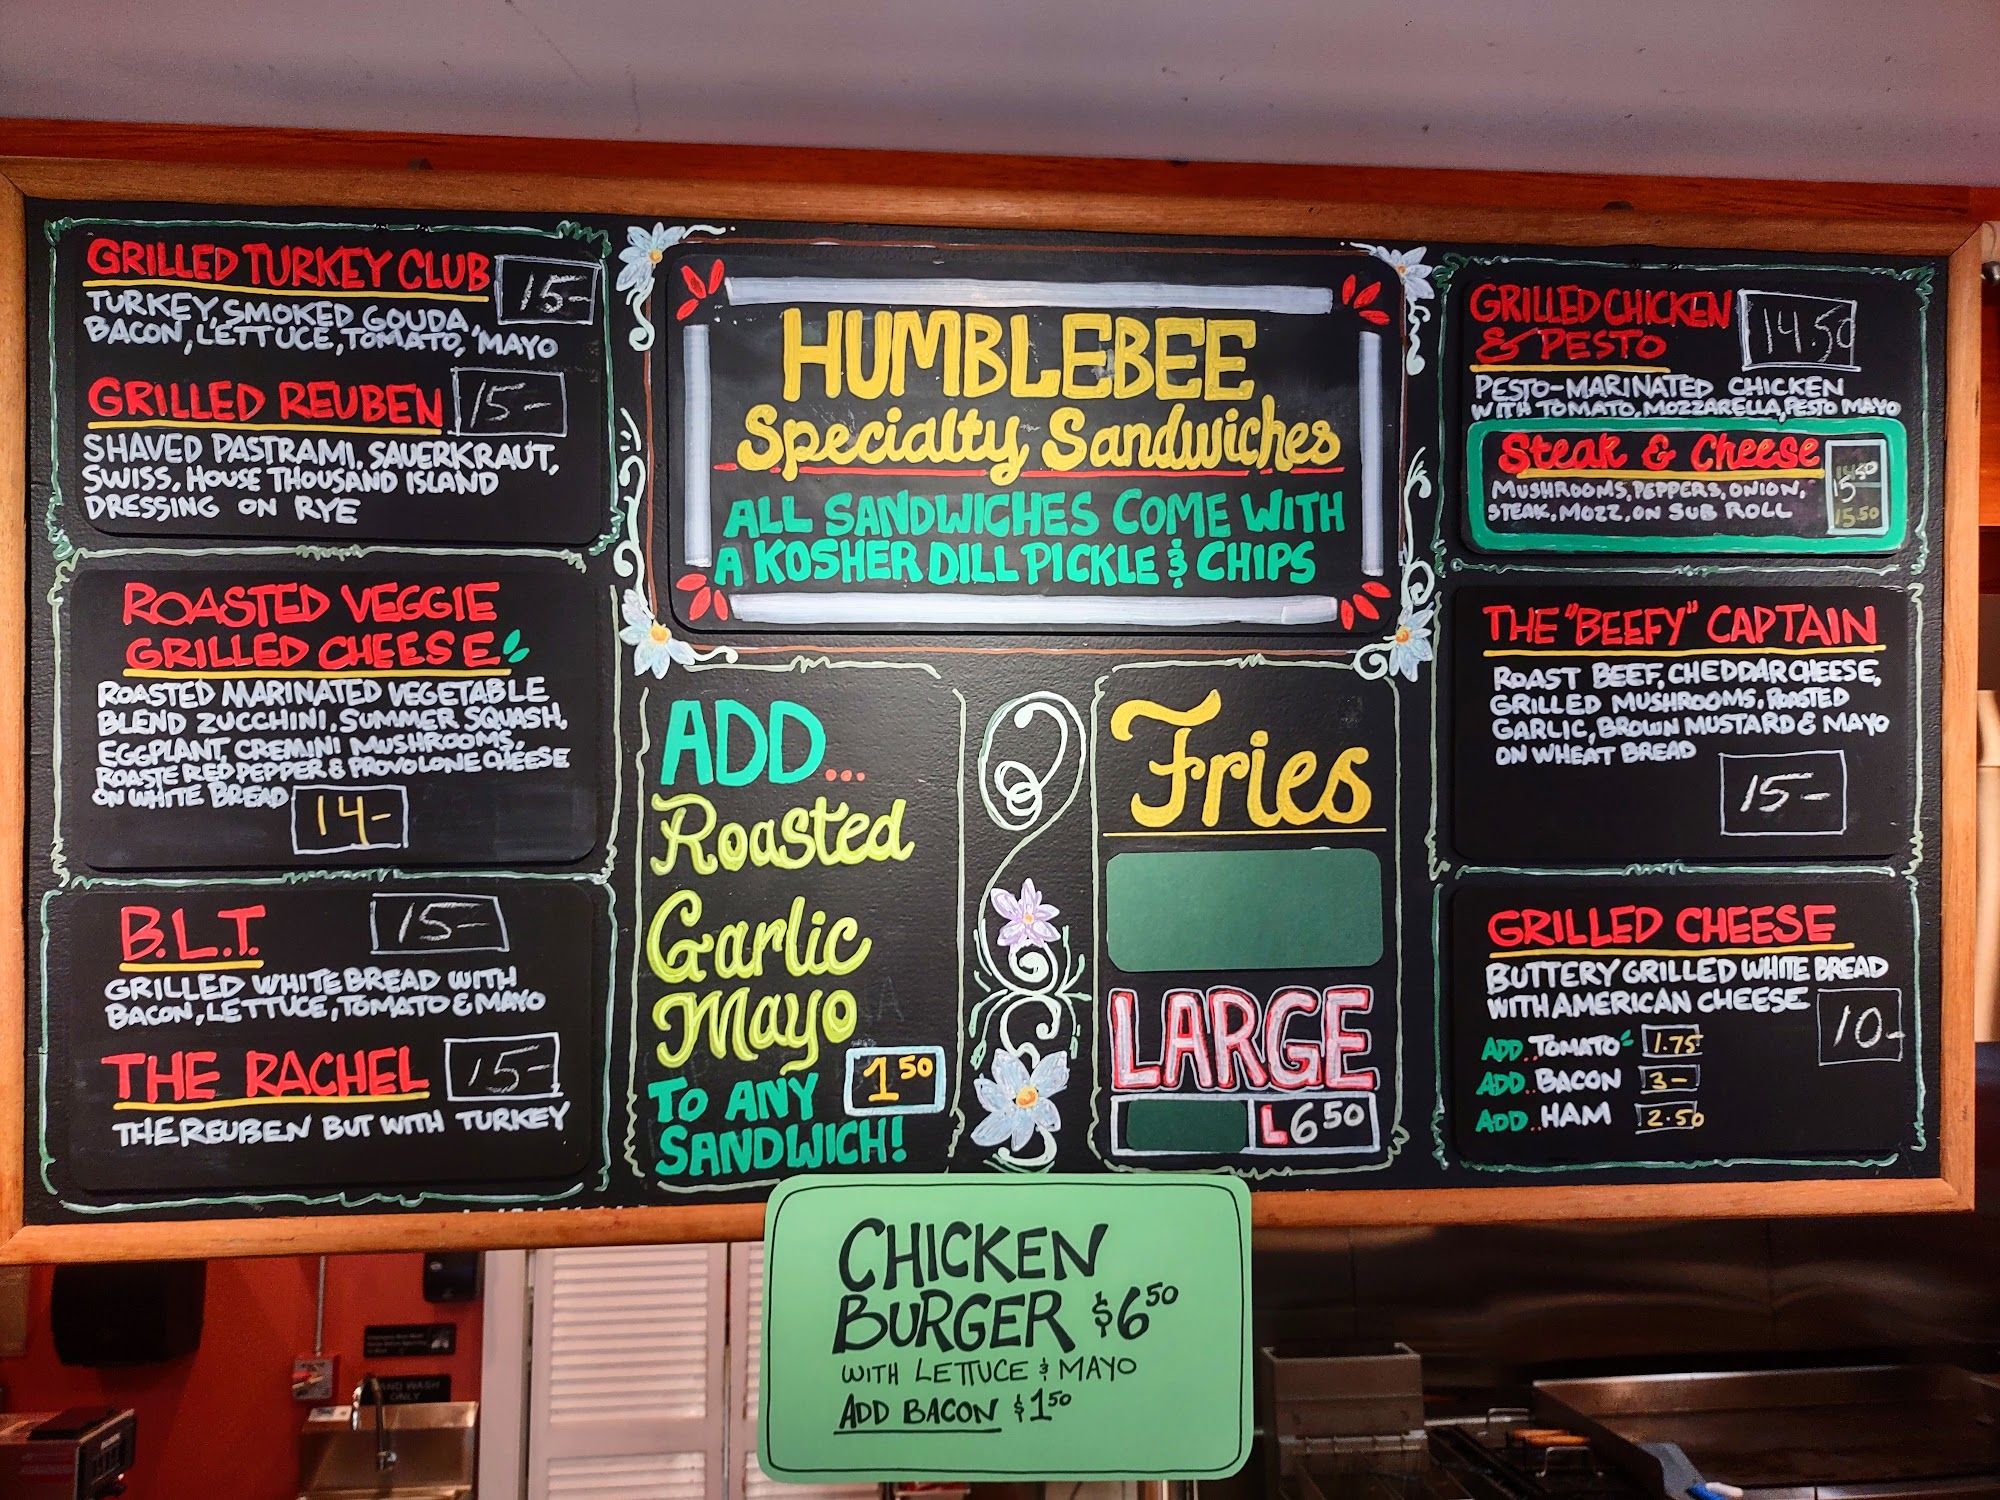 GRILLED TURKEY CLUB 15-
TURKEY, SMOKED GOUDA,
BACON, LETTUCE, TOMATO, MAYO
GRILLED REUBEN 15-
SHAVED PASTRAMI, SAUERKRAUT,
SWISS, HOUSE THOUSAND ISLAND
DRESSING ON RYE
ROASTED VEGGIE
GRILLED CHEESE
ROASTED MARINATED VEGETABLE
BLEND ZUCCHINI, SUMMER SQUASH,
EGGPLANT, CREMINI MUSHROOMS,
ROASTE RED PEPPER & PROVOLONE CHEESE
ON WHITE BREAD
14-
B.L.T. 15-
GRILLED WHITE BREAD WITH
BACON, LETTUCE, TOMATO & MAYO
THE RACHEL 15-
THE REUBEN BUT WITH TURKEY
HUMBLEBEE
Specialty Sandwiches
ALL SANDWICHES COME WITH
A KOSHER DILL PICKLE & CHIPS
ADD...
Roasted
Garlic
Mayo
TO ANY 1.50
SANDWICH!
Fries
LARGE
L 6.50
GRILLED CHICKEN
& PESTO 14.50
PESTO-MARINATED CHICKEN
WITH TOMATO, MOZZARELLA, PESTO MAYO
Steak & Cheese
MUSHROOMS, PEPPERS, ONION,
STEAK, MOZZ, ON SUB ROLL
15.50
THE "BEEFY" CAPTAIN
ROAST BEEF, CHEDDAR CHEESE,
GRILLED MUSHROOMS, ROASTED
GARLIC, BROWN MUSTARD & MAYO
ON WHEAT BREAD
15-
GRILLED CHEESE
BUTTERY GRILLED WHITE BREAD
WITH AMERICAN CHEESE 10-
ADD.. TOMATO 1.75
ADD.. BACON 3-
ADD.. HAM 2.50
CHICKEN
BURGER $6.50
WITH LETTUCE & MAYO
ADD BACON $1.50
HAND WASH
ONLY